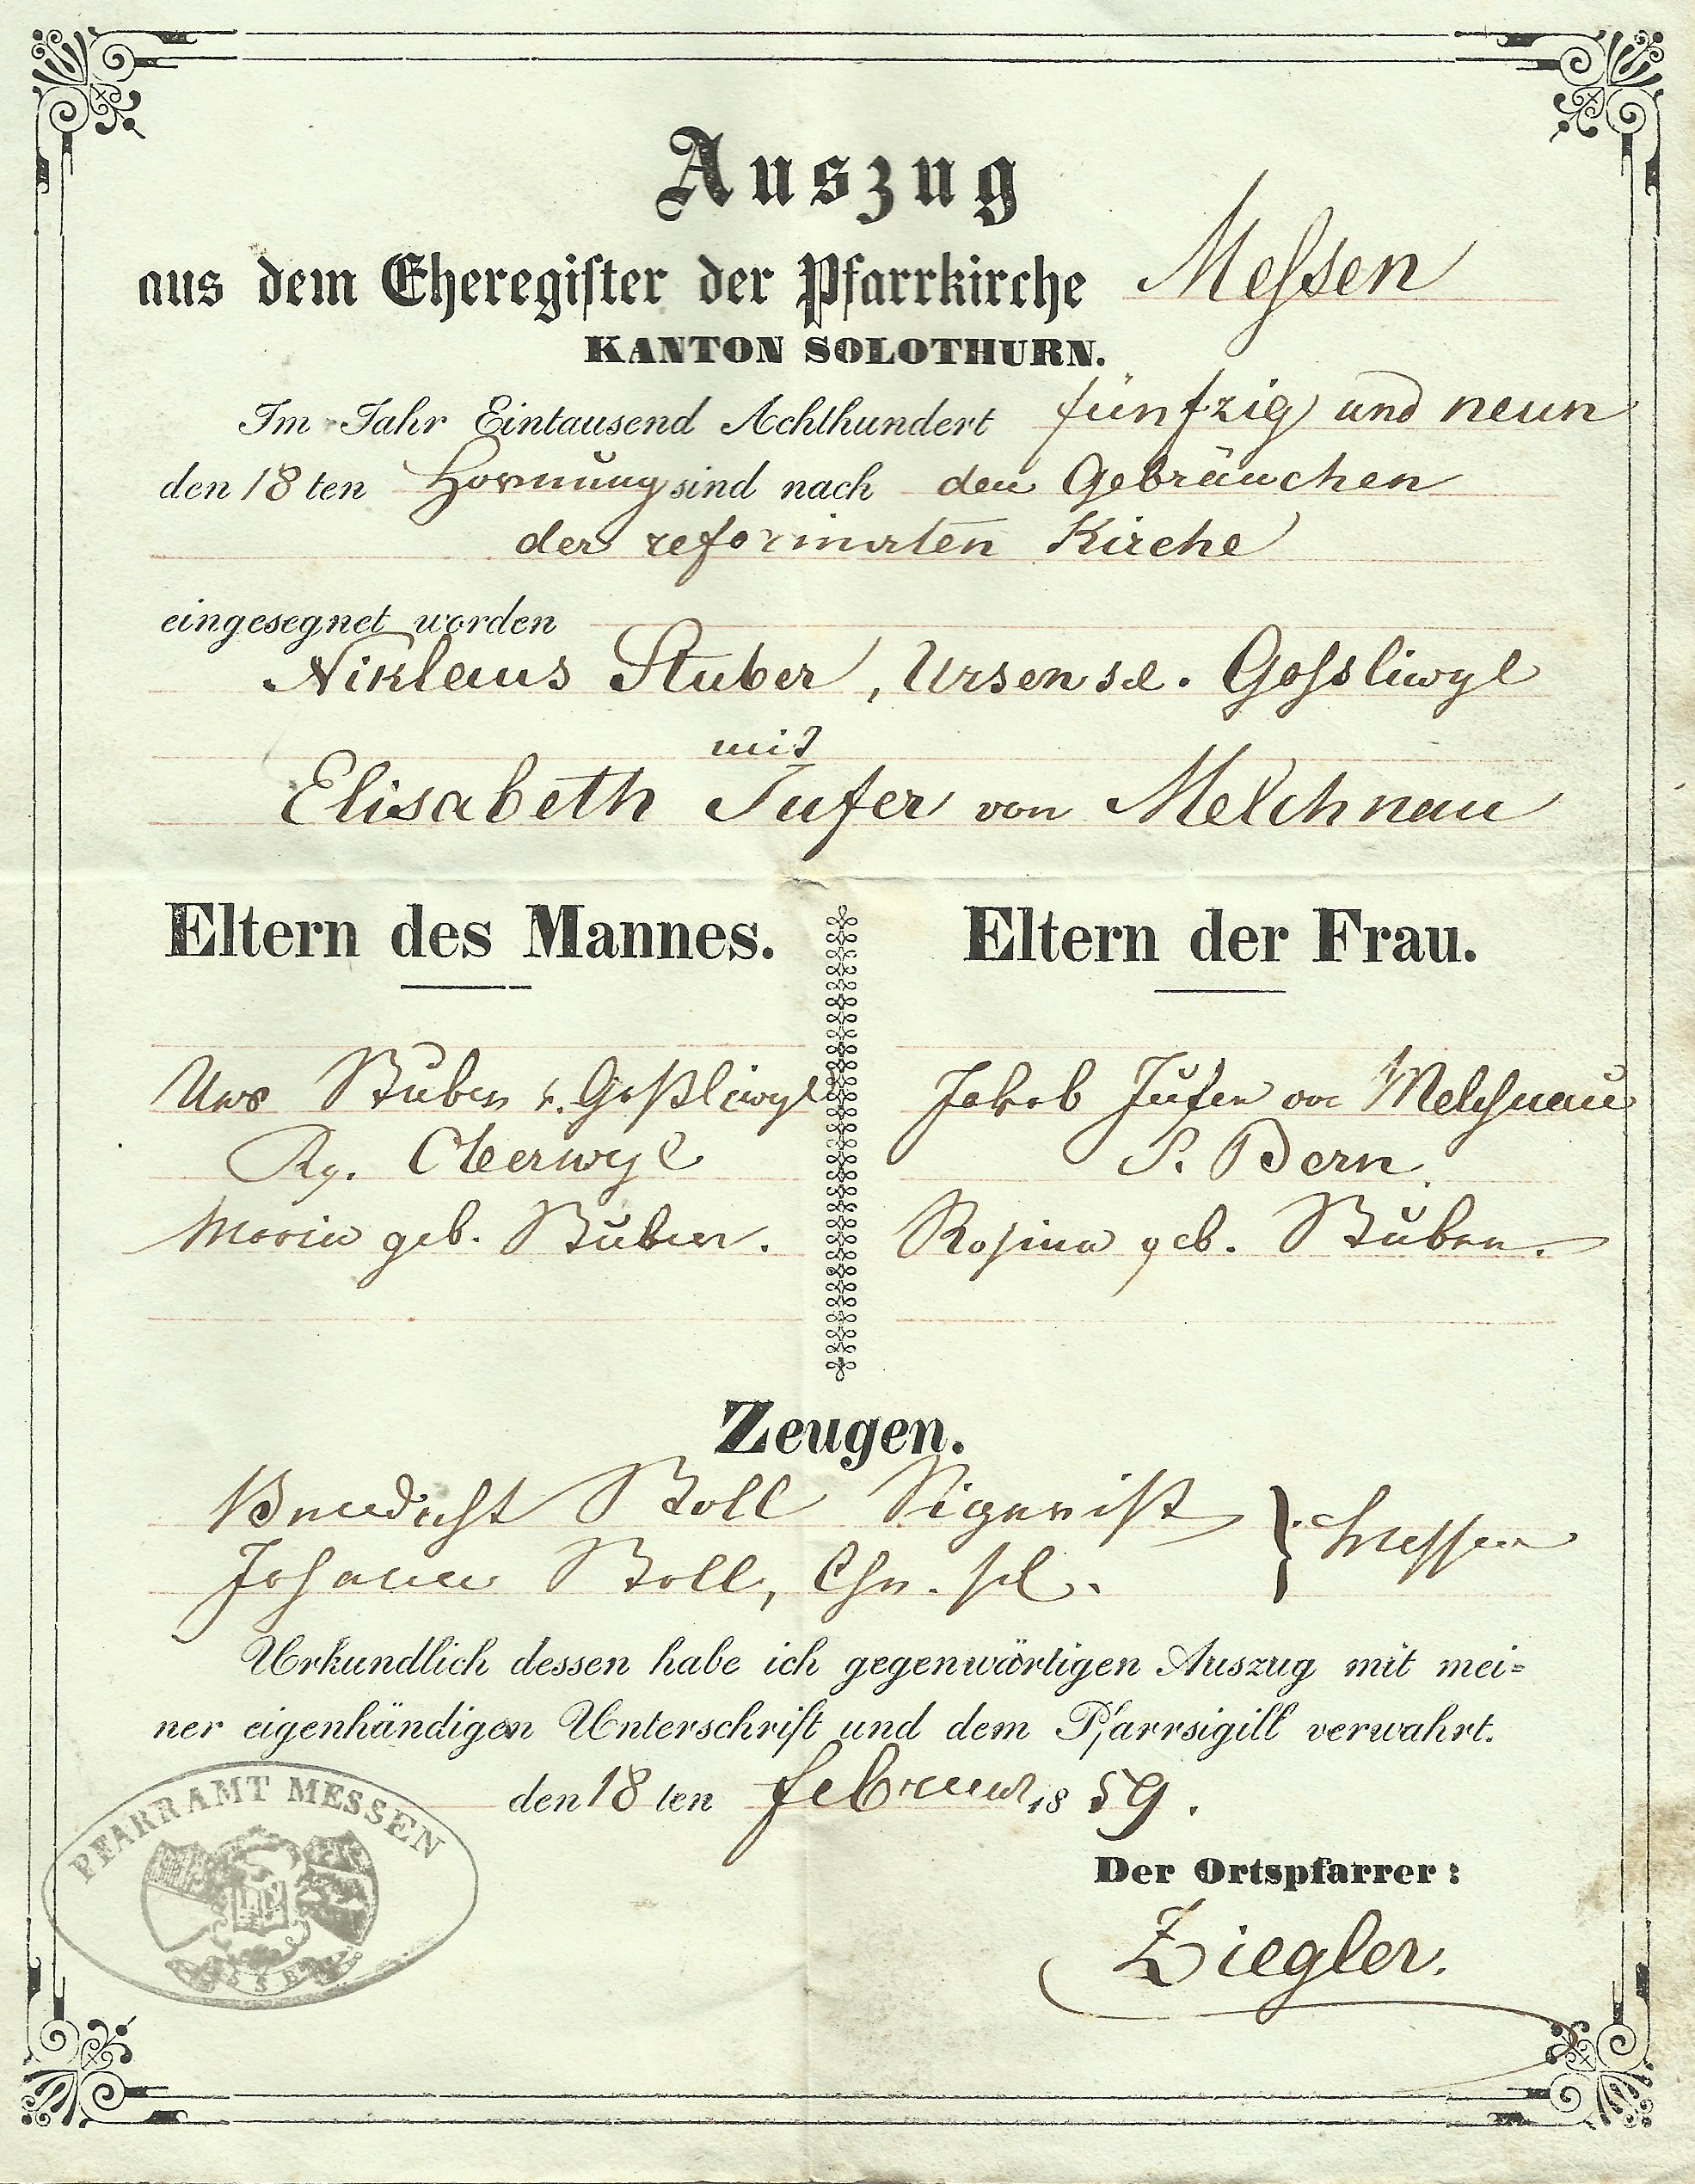 Auszug
aus dem Eheregister der Pfarrkirche Messen
KANTON SOLOTHURN.
Im Jahr Eintausend Achthundert fünfzig und neun
den 18 ten Hornung sind nach den Gebräuchen
der reformirten Kirche
eingesegnet worden
Niklaus Stuber, Ursen sel. Gossliwyl
mit
Elisabeth Jufer von Melchnau
Eltern des Mannes.
Eltern der Frau.
Urs Stuber v. Goßliwyl
Jakob Jufer von Melchnau
Oberwyl
Bern
Maria geb. Stuber.
Rosina geb. Stuber.
Zeugen.
Benedicht Stoll Sigerist } Messen
Johann Stoll, Chr. sel.
Urkundlich dessen habe ich gegenwärtigen Auszug mit mei=
ner eigenhändigen Unterschrift und dem Pfarrsigill verwahrt.
den 18 ten februar 18 59.
PFARRAMT MESSEN
Der Ortspfarrer:
Ziegler.